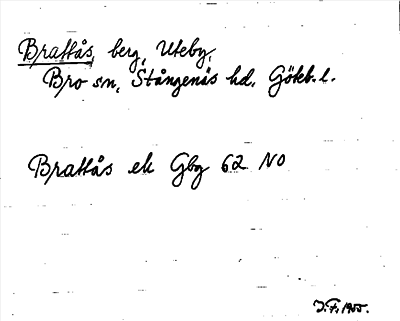 Brattås, berg, Uteby,
Bro sn, Stångenäs hd, Göteb. l.
Brattås ek Gbg 62 NO
J.F. 1955.